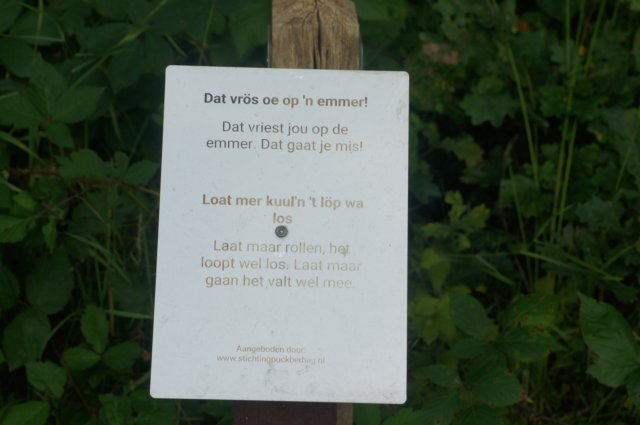 Dat vrös oe op 'n emmer!
Dat vriest jou op de
emmer. Dat gaat je mis!
Loat mer kuul'n 't löp wa
los
Laat maar rollen, het
loopt wel los. Laat maar
gaan het valt wel mee.
Aangeboden door:
www.stichtingpuckbethag.nl